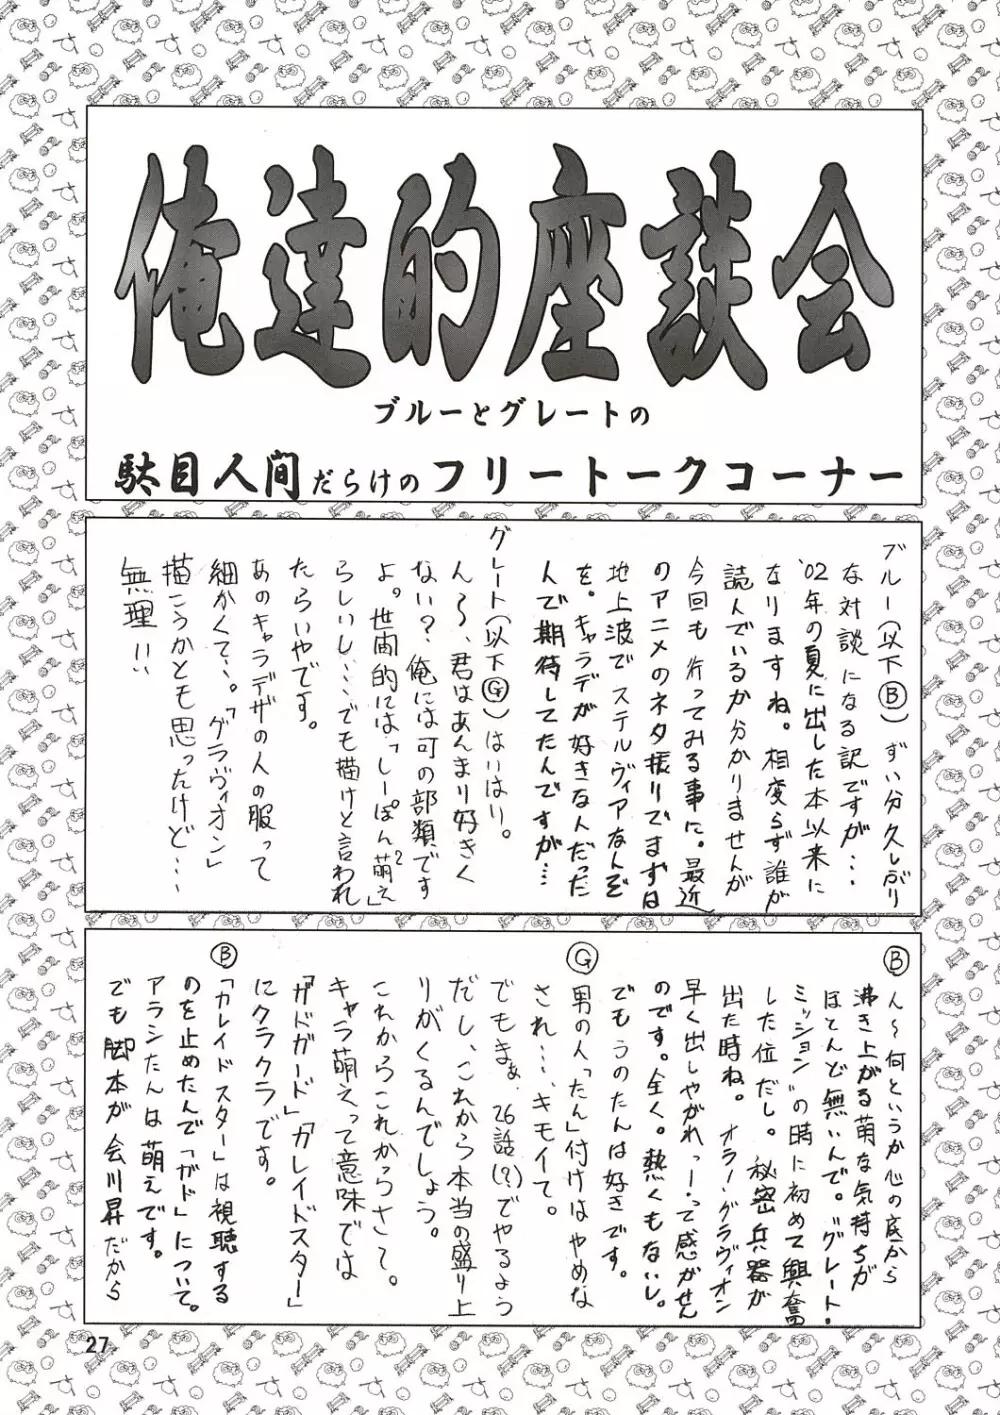 俺達的座談会
ブルーとグレートの
駄目人間だらけのフリートークコーナー
ブルー(以下Ⓑ)ずい分久しぶり
な対談になる訳ですが…
'02年の夏に出した本以来に
なりますね。相変らず誰が
読んでいるか分かりませんが
今回も行ってみる事に。最近
のアニメのネタ振りでまずは
地上波でステルヴィアなんぞ
を。キャラデが好きなんだった
んで期待してたんですが…
グレート(以下Ⓖ)はいはい。
ん〜、君はあんまり好きく
ない?俺には可の部類です
よ。世間的には「しーぽん萌え²」
らしいし…でも描けと言われ
たらいやです。
あのキャラデザの人の服って
細かくて…。「グラヴィオン」
描こうかとも思ったけど…
無理!!
Ⓑ
ん〜何というか心の底から
沸き上がる萌な気持ちが
ほとんど無いんで。"グレート・
ミッション"の時に初めて興奮
した位だし。秘密兵器が
出た時ね。オラー・グラヴィオン
早く出しやがれっー!って感がせん
のです。全く。熱くもないし。
でもうのたんは好きです。
Ⓖ
男の人「たん」付けはやめな
され…、キモイて。
でもまぁ、26話(?)でやるよう
だし、これから本当の盛り上
りがくるんでしょう。
これからこれかっらさ〜。
キャラ萌えって意味では
「ガドガード」「カレイドスター」
にクラクラです。
Ⓑ
「カレイドスター」は視聴する
のを止めたんで「ガド」について。
アラシたんは萌えです。
でも脚本が会川昇だから
27